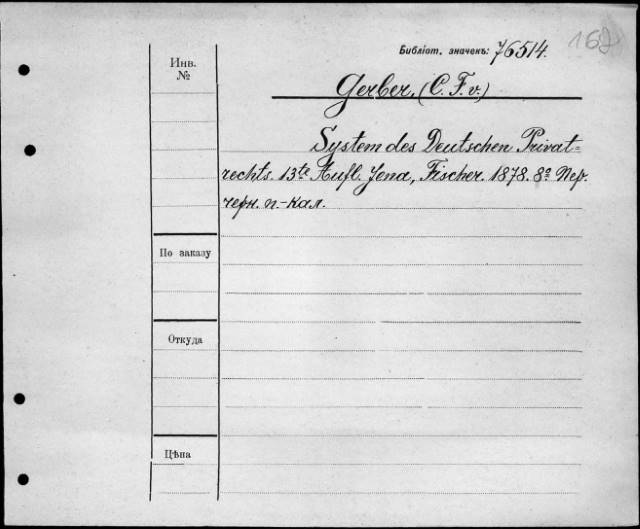 Библіот. значекъ: 76514. 162
Инв.
№
Gerber, (C. F. v.)
System des Deutschen Privat=
rechts. 13te Aufl. Jena, Fischer. 1878. 8º Пер.
черн. п.-кал.
По заказу
Откуда
Цѣна